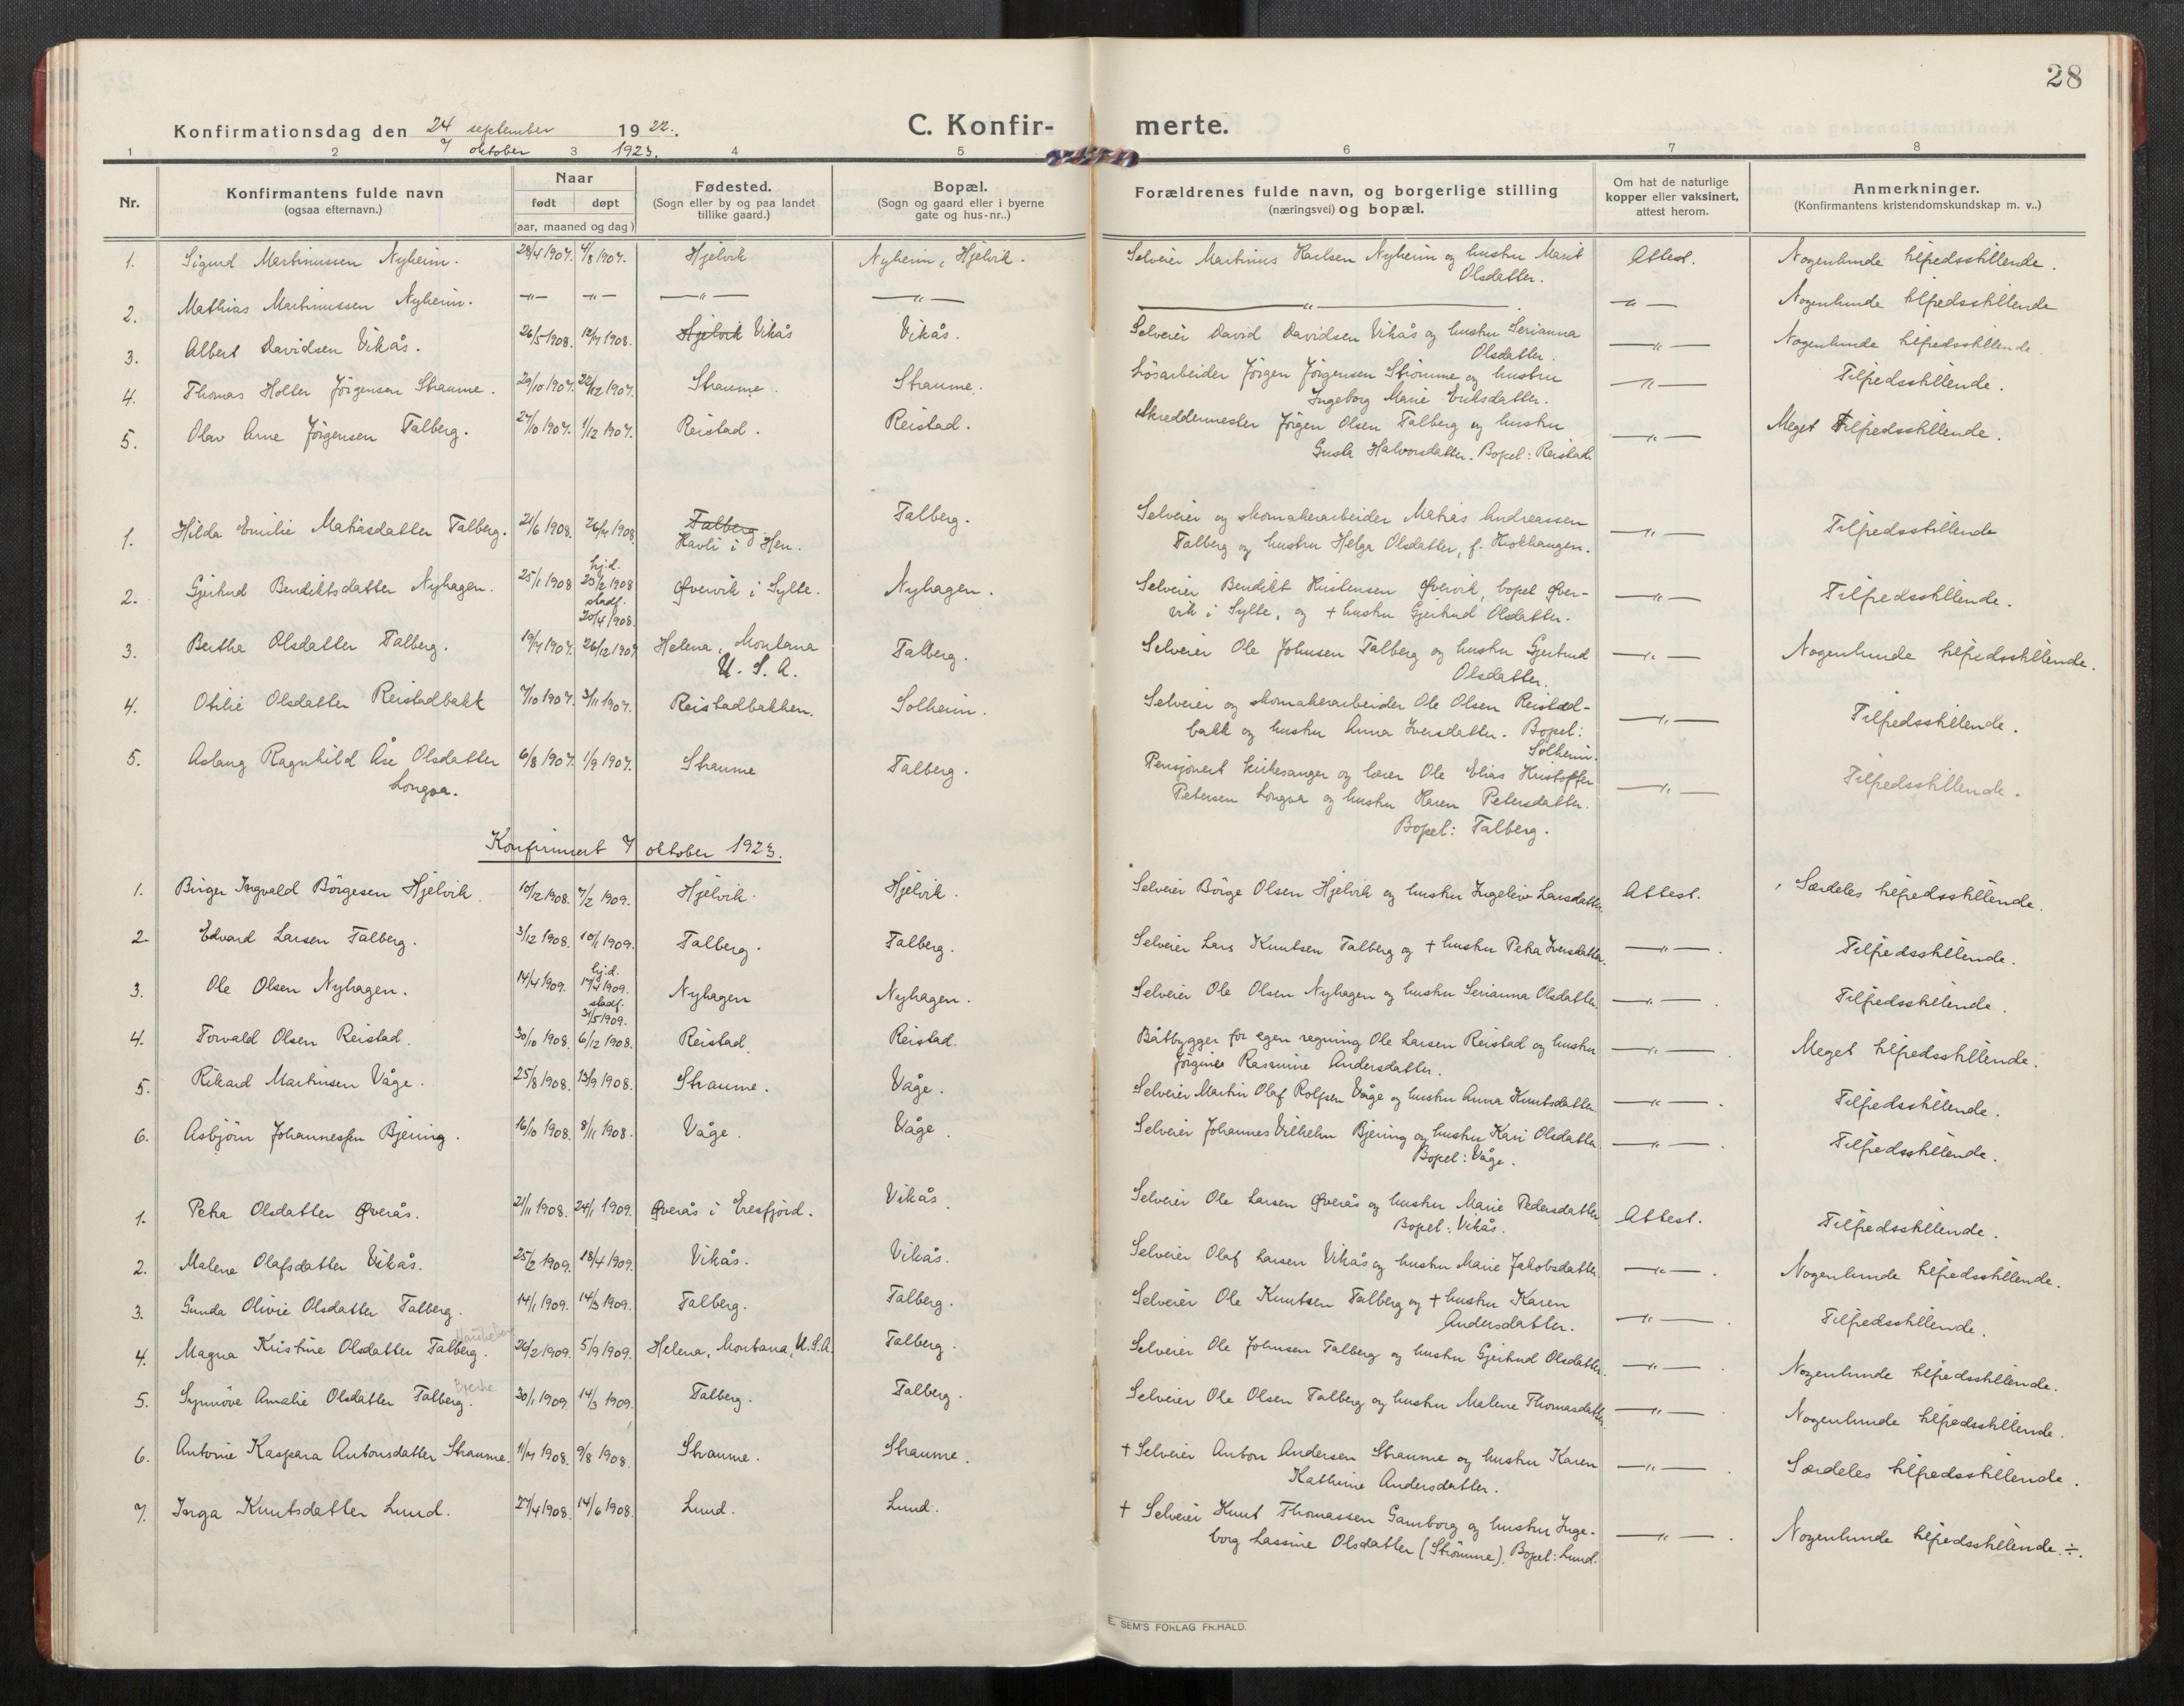 28
Konfirmationsdag den 24 september 1922.
7 oktober 1923.
C. Konfir-merte.
1 2 3 4 5 6 7 8
Nr.
Konfirmantens fulde navn
(ogsaa efternavn.)
Naar
født døpt
(aar, maaned og dag)
Fødested.
(Sogn eller by og paa landet
tillike gaard.)
Bopæl.
(Sogn og gaard eller i byerne
gate og hus-nr..)
Forældrenes fulde navn, og borgerlige stilling
(næringsvei) og bopæl.
Om hat de naturlige
kopper eller vaksinert,
attest herom.
Anmerkninger.
(Konfirmantens kristendomskundskap m. v..)
1. Sigurd Martinussen Nyheim. 28/4 1907. 4/8 1907. Hjelvik Nyheim, Hjelvik. Selveier Martinus Karlsen Nyheim og hustru Marit Attest. Nogenlunde tilfredsstillende.
Olsdatter.
2. Mathias Martinussen Nyheim. —"— —"— —"— —"— —"— —"— Nogenlunde tilfredsstillende
3. Albert Davidsen Vikås. 26/5 1908. 12/7 1908. Hjelvik Vikås Vikås. Selveier David Davidsen Vikås og hustru Serianna —"— Nogenlunde tilfredsstillende.
Olsdatter.
4. Thomas Holter Jörgensen Straume. 29/10 1907. 22/12 1907. Straume. Straume. Lösarbeider Jörgen Jörgensen Strömme og hustru —"— Tilfredsstillende.
Ingeborg Marie Eriksdatter.
5. Olav Arne Jörgensen Talberg. 27/10 1907. 1/12 1907. Reistad. Reistad. Skreddermester Jörgen Olsen Talberg og hustru —"— Meget Tilfredsstillende.
Gusta Halvorsdatter. Bopel: Reistad.
1. Hilda Emilie Matiasdatter Talberg. 21/6 1908. 26/7 1908. Talberg Talberg. Selveier og skomakerarbeider Matias Andreassen —"— Tilfredsstillende
Havli i Hen. Talberg og hustru Helga Olsdatter, f. Hiokhaugen.
2. Gjertrud Bendiktsdatter Nyhagen. 25/1 1908 hj.d. 23/2 1908 Øvervik i Sylte. Nyhagen. Selveier Bendikt Kristensen Øvervik, bopel Øver- —"— Tilfredsstillende.
stadf. 20/4 1908. vik i Sylte, og + hustru Gjertrud Olsdatter.
3. Bertha Olsdatter Talberg. 19/7 1907. 26/12 1907 Helena, Montana Talberg. Selveier Ole Johnsen Talberg og hustru Gjertrud —"— Nogenlunde tilfredsstillende.
U. S. A. Olsdatter.
4. Otilie Olsdatter Reistadbakk 7/10 1907. 3/11 1907. Reistadbakken. Solheim. Selveier og skomakerarbeider Ole Olsen Reistad- —"— Tilfredsstillende.
bakk og hustru Anna Iversdatter. Bopel:
Solheim.
5. Aslaug Ragnhild Åse Olsdatter 6/8 1907. 1/9 1907. Straume Talberg. Pensjonert kirkesanger og lærer Ole Elias Kristoffer —"— Tilfredsstillende.
Longva. Petersen Longva og hustru Karen Petersdatter.
Bopel: Talberg.
Konfirmert 7 oktober 1923.
1. Birger Ingvald Börgesen Hjelvik. 10/12 1908. 7/2 1909. Hjelvik. Hjelvik. Selveier Börge Olsen Hjelvik og hustru Ingeleiv Larsdatter. Attest. Særdeles tilfredsstillende.
2. Edvard Larsen Talberg. 3/12 1908. 10/1 1909. Talberg. Talberg. Selveier Lars Knutsen Talberg og + hustru Petra Iversdatter. —"—. Tilfredsstillende.
3. Ole Olsen Nyhagen. 14/4 1909. hj.d. 17/4 1909. Nyhagen Nyhagen. Selveier Ole Olsen Nyhagen og hustru Serianna Olsdatter. —"—. Tilfredsstillende.
stadf. 31/5 1909.
4. Torvald Olsen Reistad. 30/10 1908. 6/12 1908. Reistad. Reistad. Båtbygger for egen regning Ole Larsen Reistad og hustru —"—. Meget tilfredsstillende.
Jörgine Rasmine Andersdatter.
5. Rikard Martinsen Våge. 25/8 1908. 13/9 1908. Straume. Våge. Selveier Martin Olaf Rolfsen Våge og hustru Anna Knutsdatter —"—. Tilfredsstillende.
6. Asbjörn Johannessen Bjering. 16/10 1908. 8/11 1908. Våge. Våge. Selveier Johannes Vilhelm Bjering og hustru Kari Olsdatter. —"—. Tilfredsstillende.
Bopel: Våge.
1. Petra Olsdatter Øverås. 21/11 1908. 24/1 1909. Øverås i Eresfjord. Vikås. Selveier Ole Larsen Øverås og hustru Marie Pedersdatter Attest. Tilfredsstillende.
Bopel: Vikås.
2. Malene Olafsdatter Vikås. 25/2 1909. 18/4 1909. Vikås. Vikås. Selveier Olaf Larsen Vikås og hustru Marie Jakobsdatter. —"—. Nogenlunde tilfredsstillende.
3. Gunda Olivie Olsdatter Talberg. 14/1 1909. 14/3 1909. Talberg. Talberg. Selveier Ole Knutsen Talberg og + hustru Karen —"—. Tilfredsstillende.
Andersdatter.
4. Magna Kristine Olsdatter Talberg. 26/2 1909. 5/9 1909. Helena, Montana, U.S.A. Talberg. Selveier Ole Johnsen Talberg og hustru Gjertrud Olsdatter. —"—. Nogenlunde tilfredsstillende.
5. Synnöve Amalie Olsdatter Talberg. 30/1 1909. 14/3 1909. Talberg. Talberg. Selveier Ole Olsen Talberg og hustru Malene Thomasdatter. —"—. Nogenlunde tilfredsstillende.
6. Antonie Kaspara Antonsdatter Straume. 11/7 1908. 9/8 1908. Straume. Straume. + Selveier Anton Andersen Straume og hustru Karen —"—. Særdeles tilfredsstillende.
Kathrine Andersdatter.
7. Inga Knutsdatter Lund. 27/4 1908. 14/6 1908. Lund. Lund. + Selveier Knut Thomassen Gamborg og hustru Inge- —"—. Nogenlunde tilfredsstillende.÷.
borg Lassine Olsdatter (Strömme). Bopel: Lund.
E. SEM'S FORLAG FR.HALD.